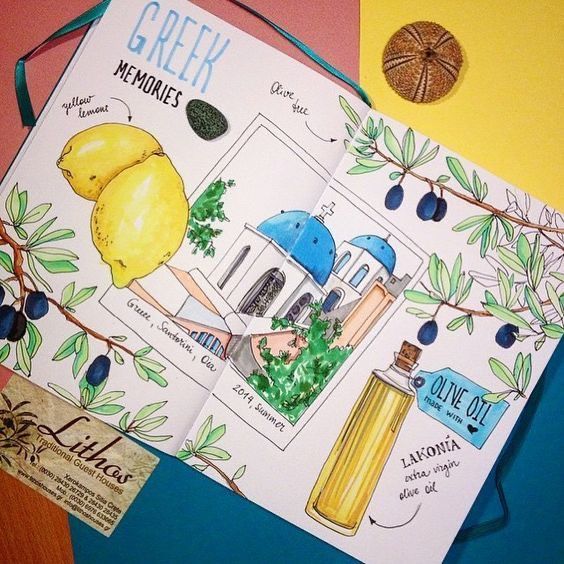 GREEK
MEMORIES
yellow
lemons
Olive
tree
Greece, Santorini, Oia
2014, summer
OLIVE OIL
made with
LAKONÍA
extra virgin
olive oil
Lithos
Traditional Guest Houses
Xerokampos Sitia Crete